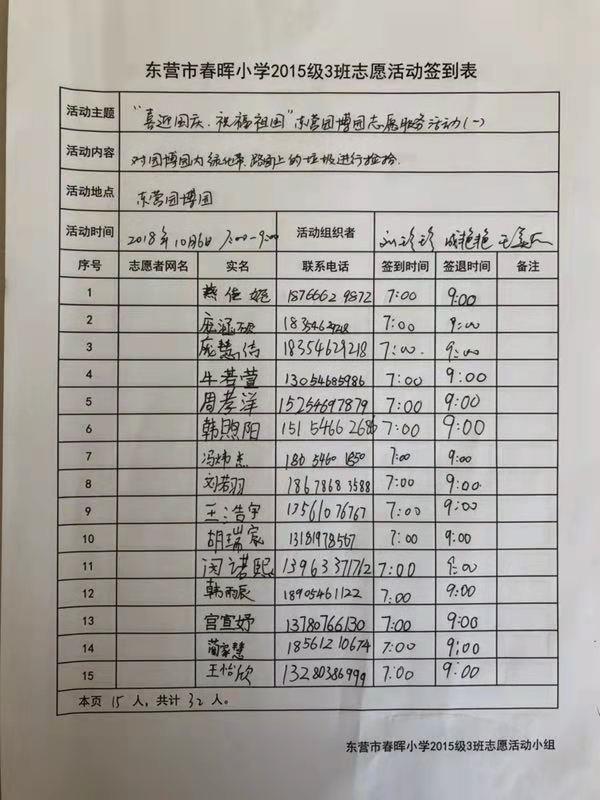 东营市春晖小学2015级3班志愿活动签到表
活动主题 “喜迎国庆、祝福祖国”东营园博园志愿服务活动(一)
活动内容 对园博园内绿化带、路面上的垃圾进行捡拾.
活动地点 东营园博园
活动时间 2018年10月6日 7:00-9:00 活动组织者 刘珍珍 成艳艳
序号 志愿者网名 实名 联系电话 签到时间 签退时间 备注
1 燕佳姬 18766629872 7:00 9:00
2 庞涵硕 7:00 9:00
3 庞慧洁 18354629218 7:00. 9:00
4 牛若萱 13054685986 7:00 9:00
5 周孝洋 15254697879 7:00 9:00
6 韩煦阳 15154662686 7:00 9:00
7 冯炜杰 18054601850 7:00 9:00
8 刘若羽 18678683588 7:00 9:00
9 王浩宇 13561076767 7:00 9:00
10 胡瑞宸 13181978567 7:00 9:00
11 闵诺熙 13963371712 7:00 9:00
12 韩雨辰 18905461122 7:00 9:00
13 宫宣妤 13780766130 7:00 9:00
14 蔺家慧 18561210674 7:00 9:00
15 王怡欣 13280386999 7:00 9:00
本页 15 人，共计 32 人。
东营市春晖小学2015级3班志愿活动小组